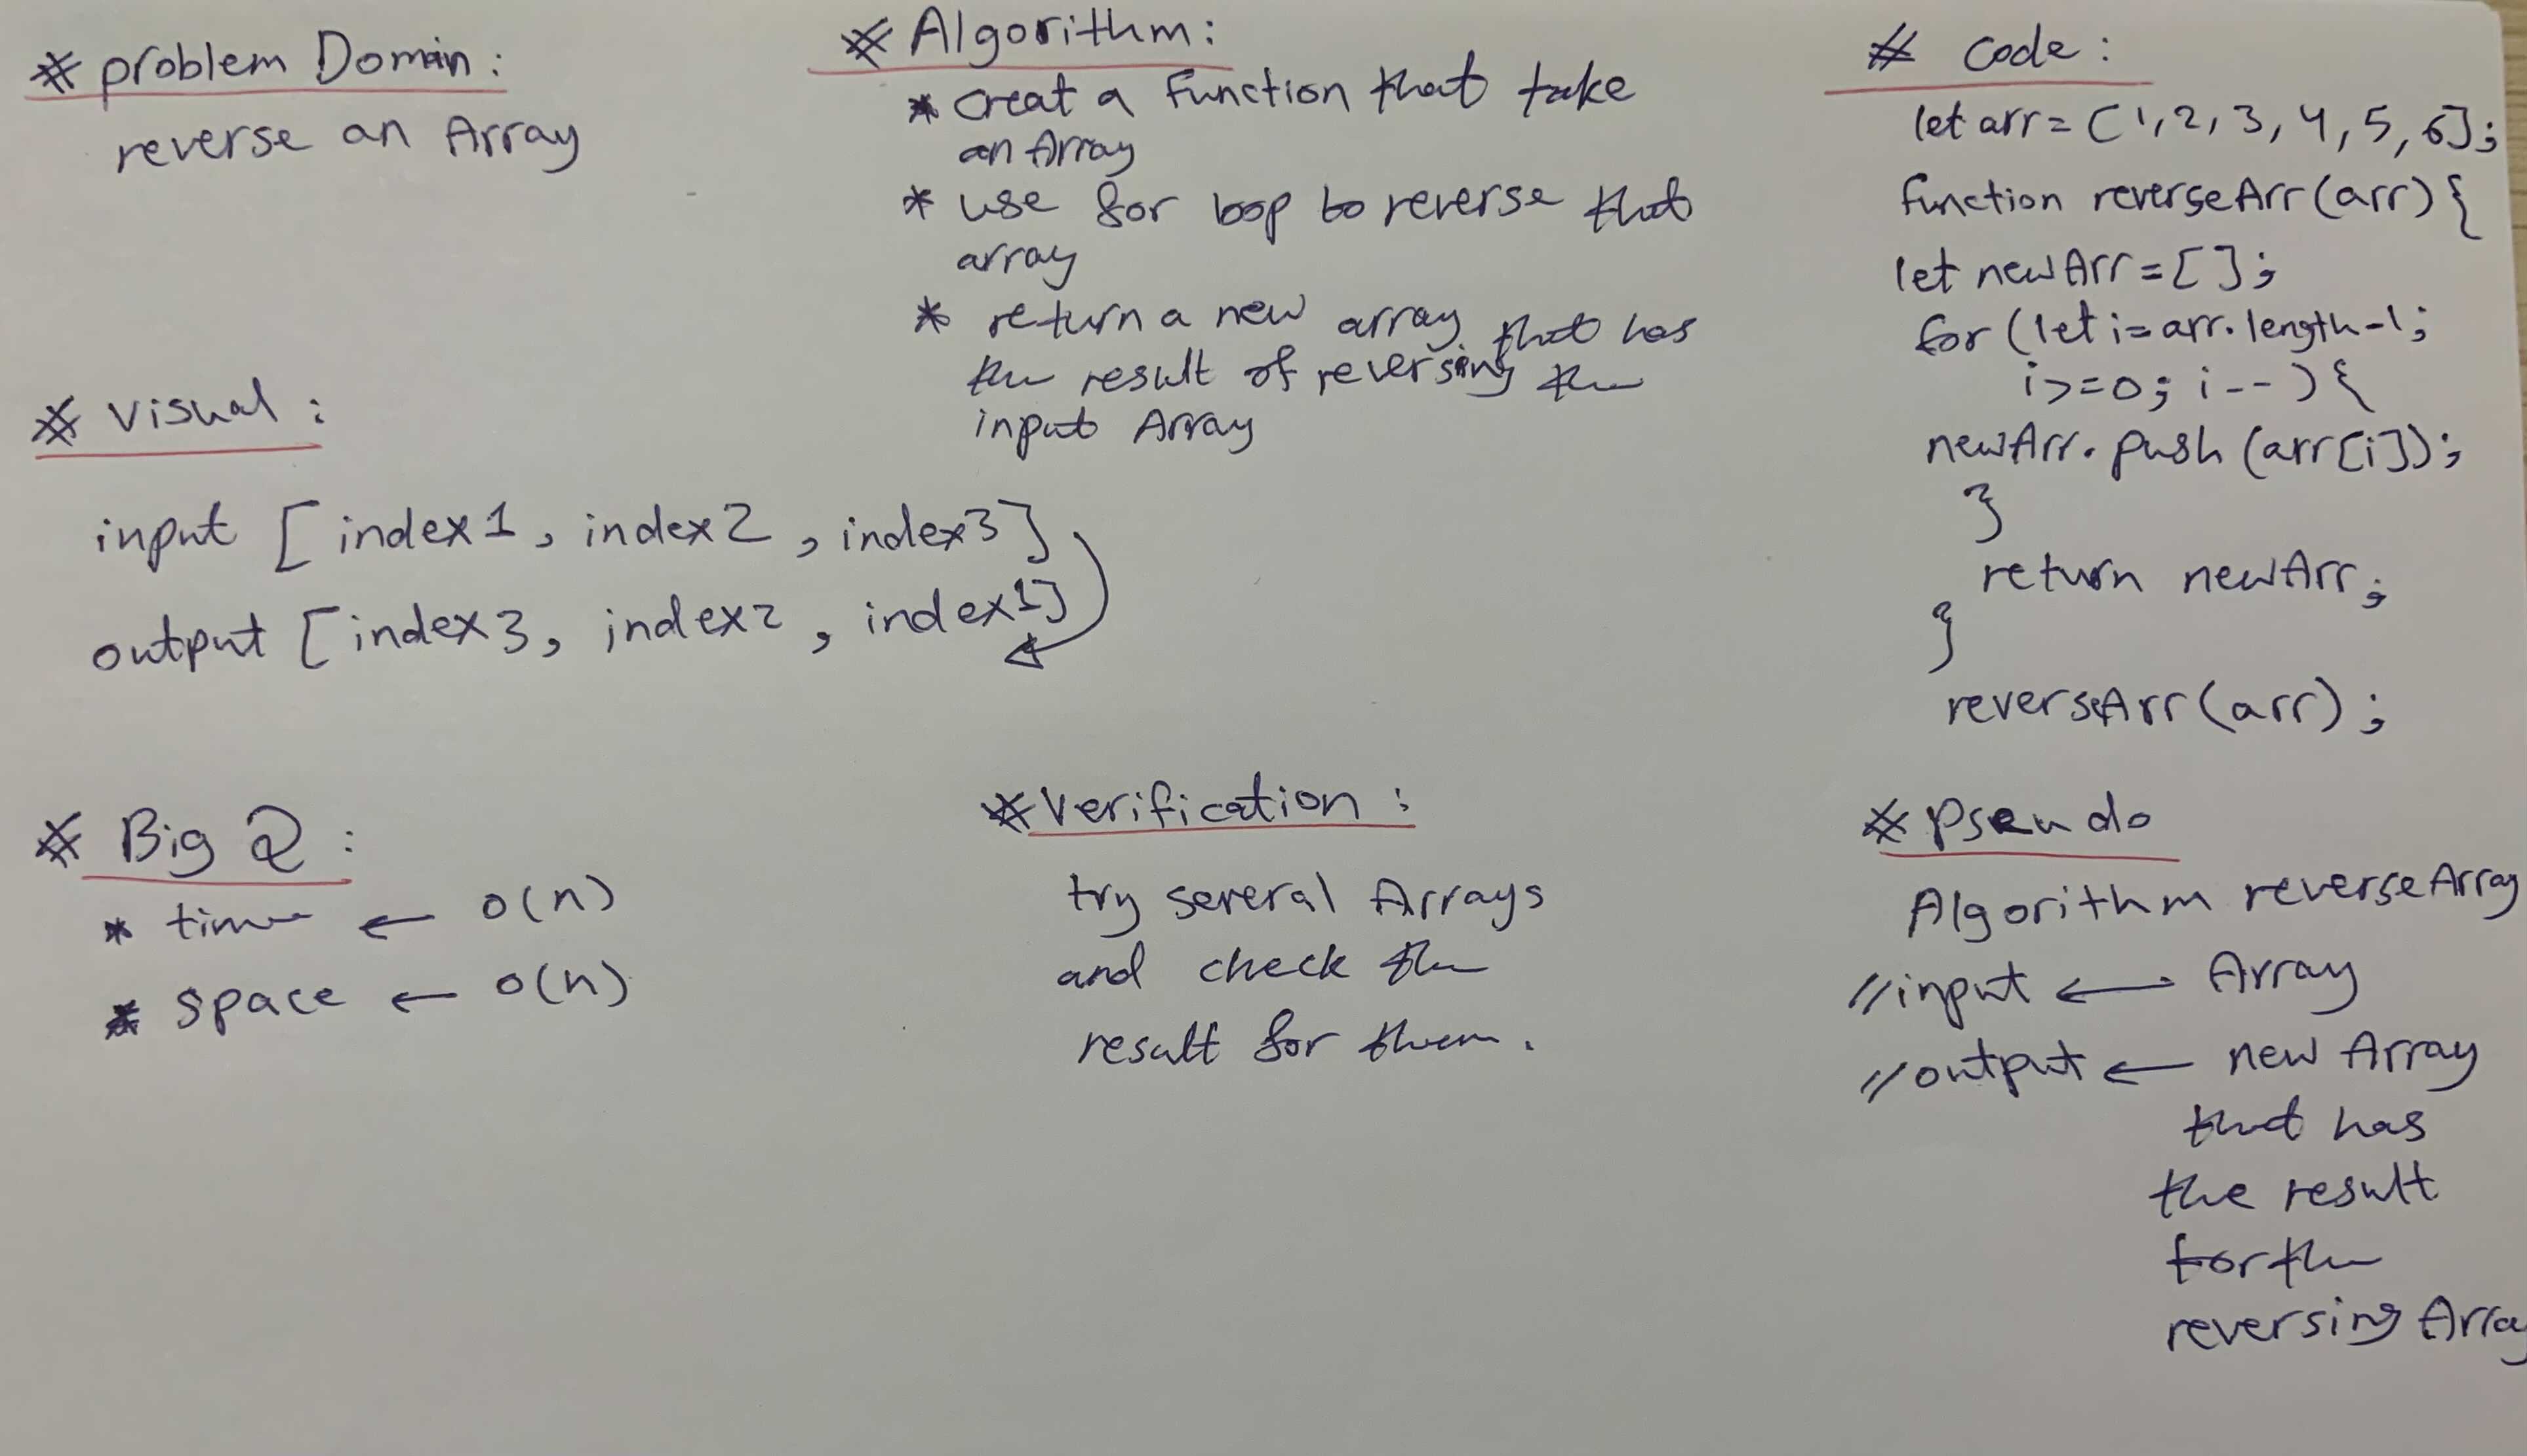 # problem Domain :
reverse an Array
# Visual :
input [ index1 , index2 , index3 ]
output [ index3 , index2 , index1 ]
# Big O :
* time ← O(n)
* space ← O(n)
# Algorithm :
* creat a function that take
an Array
* use for loop to reverse that
array
* return a new array that has
the result of reversing the
input Array
# Verification :
try several Arrays
and check the
result for them .
# code :
let arr = [ 1, 2, 3, 4, 5, 6 ];
function reverseArr (arr) {
let newArr = [ ];
for (let i = arr.length - 1;
i >= 0; i -- ) {
newArr. push (arr[i]);
}
return newArr;
}
reverseArr (arr) ;
# Pseudo
Algorithm reverseArray
// input ← Array
// output ← new Array
that has
the result
for the
reversing Array